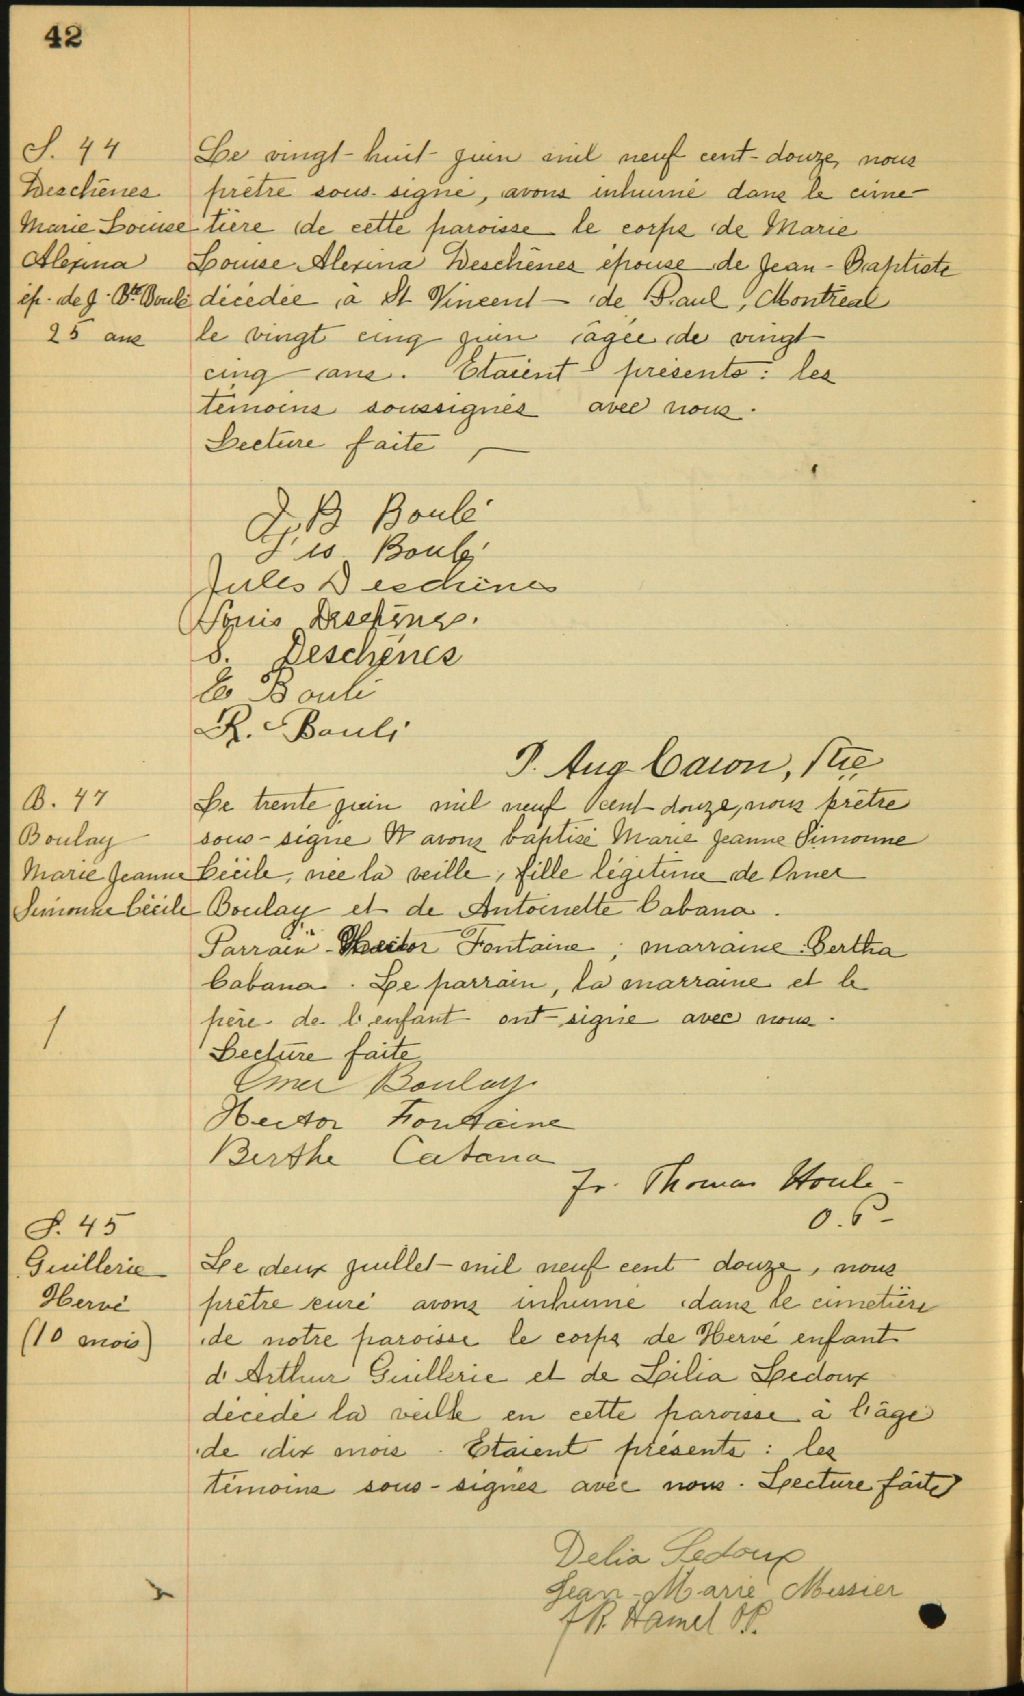 42
S. 44
Deschênes
Marie Louise
Alexina
ép. de J. Bte Boulé
25 ans
Le vingt-huit juin mil neuf cent-douze, nous
prêtre sous-signé, avons inhumé dans le cime-
tière de cette paroisse le corps de Marie
Louise Alexina Deschênes épouse de Jean-Baptiste
décédée à St Vincent de Paul, Montréal
le vingt cinq juin âgée de vingt
cinq ans. Etaient présents : les
témoins soussignés avec nous.
Lecture faite
J. B Boulé
Boulé
Jules Deschênes
Louis Deschênes.
S. Deschênes
E Boulé
R. Boulé
P. Aug Caron, Ptre
B. 47
Boulay
Marie Jeanne
Simonne Cécile
1
Le trente juin mil neuf cent douze, nous prêtre
sous-signé avons baptisé Marie Jeanne Simonne
Cécile, née la veille, fille légitime de Omer
Boulay et de Antoinette Cabana.
Parrain Hector Fontaine ; marraine Bertha
Cabana. Le parrain, la marraine et le
père de l'enfant ont signé avec nous.
Lecture faite
Omer Boulay
Hector Fontaine
Berthe Cabana
fr. Thomas Houle
O.P.
S. 45
Guillerie
Hervé
(10 mois)
Le deux juillet mil neuf cent douze, nous
prêtre curé avons inhumé dans le cimetière
de notre paroisse le corps de Hervé enfant
d'Arthur Guillerie et de Lilia Ledoux
décédé la veille en cette paroisse à l'âge
de dix mois. Etaient présents : les
témoins sous-signés avec nous. Lecture faite
Delia Ledoux
Jean-Marie Messier
f R. Hamel O.P.